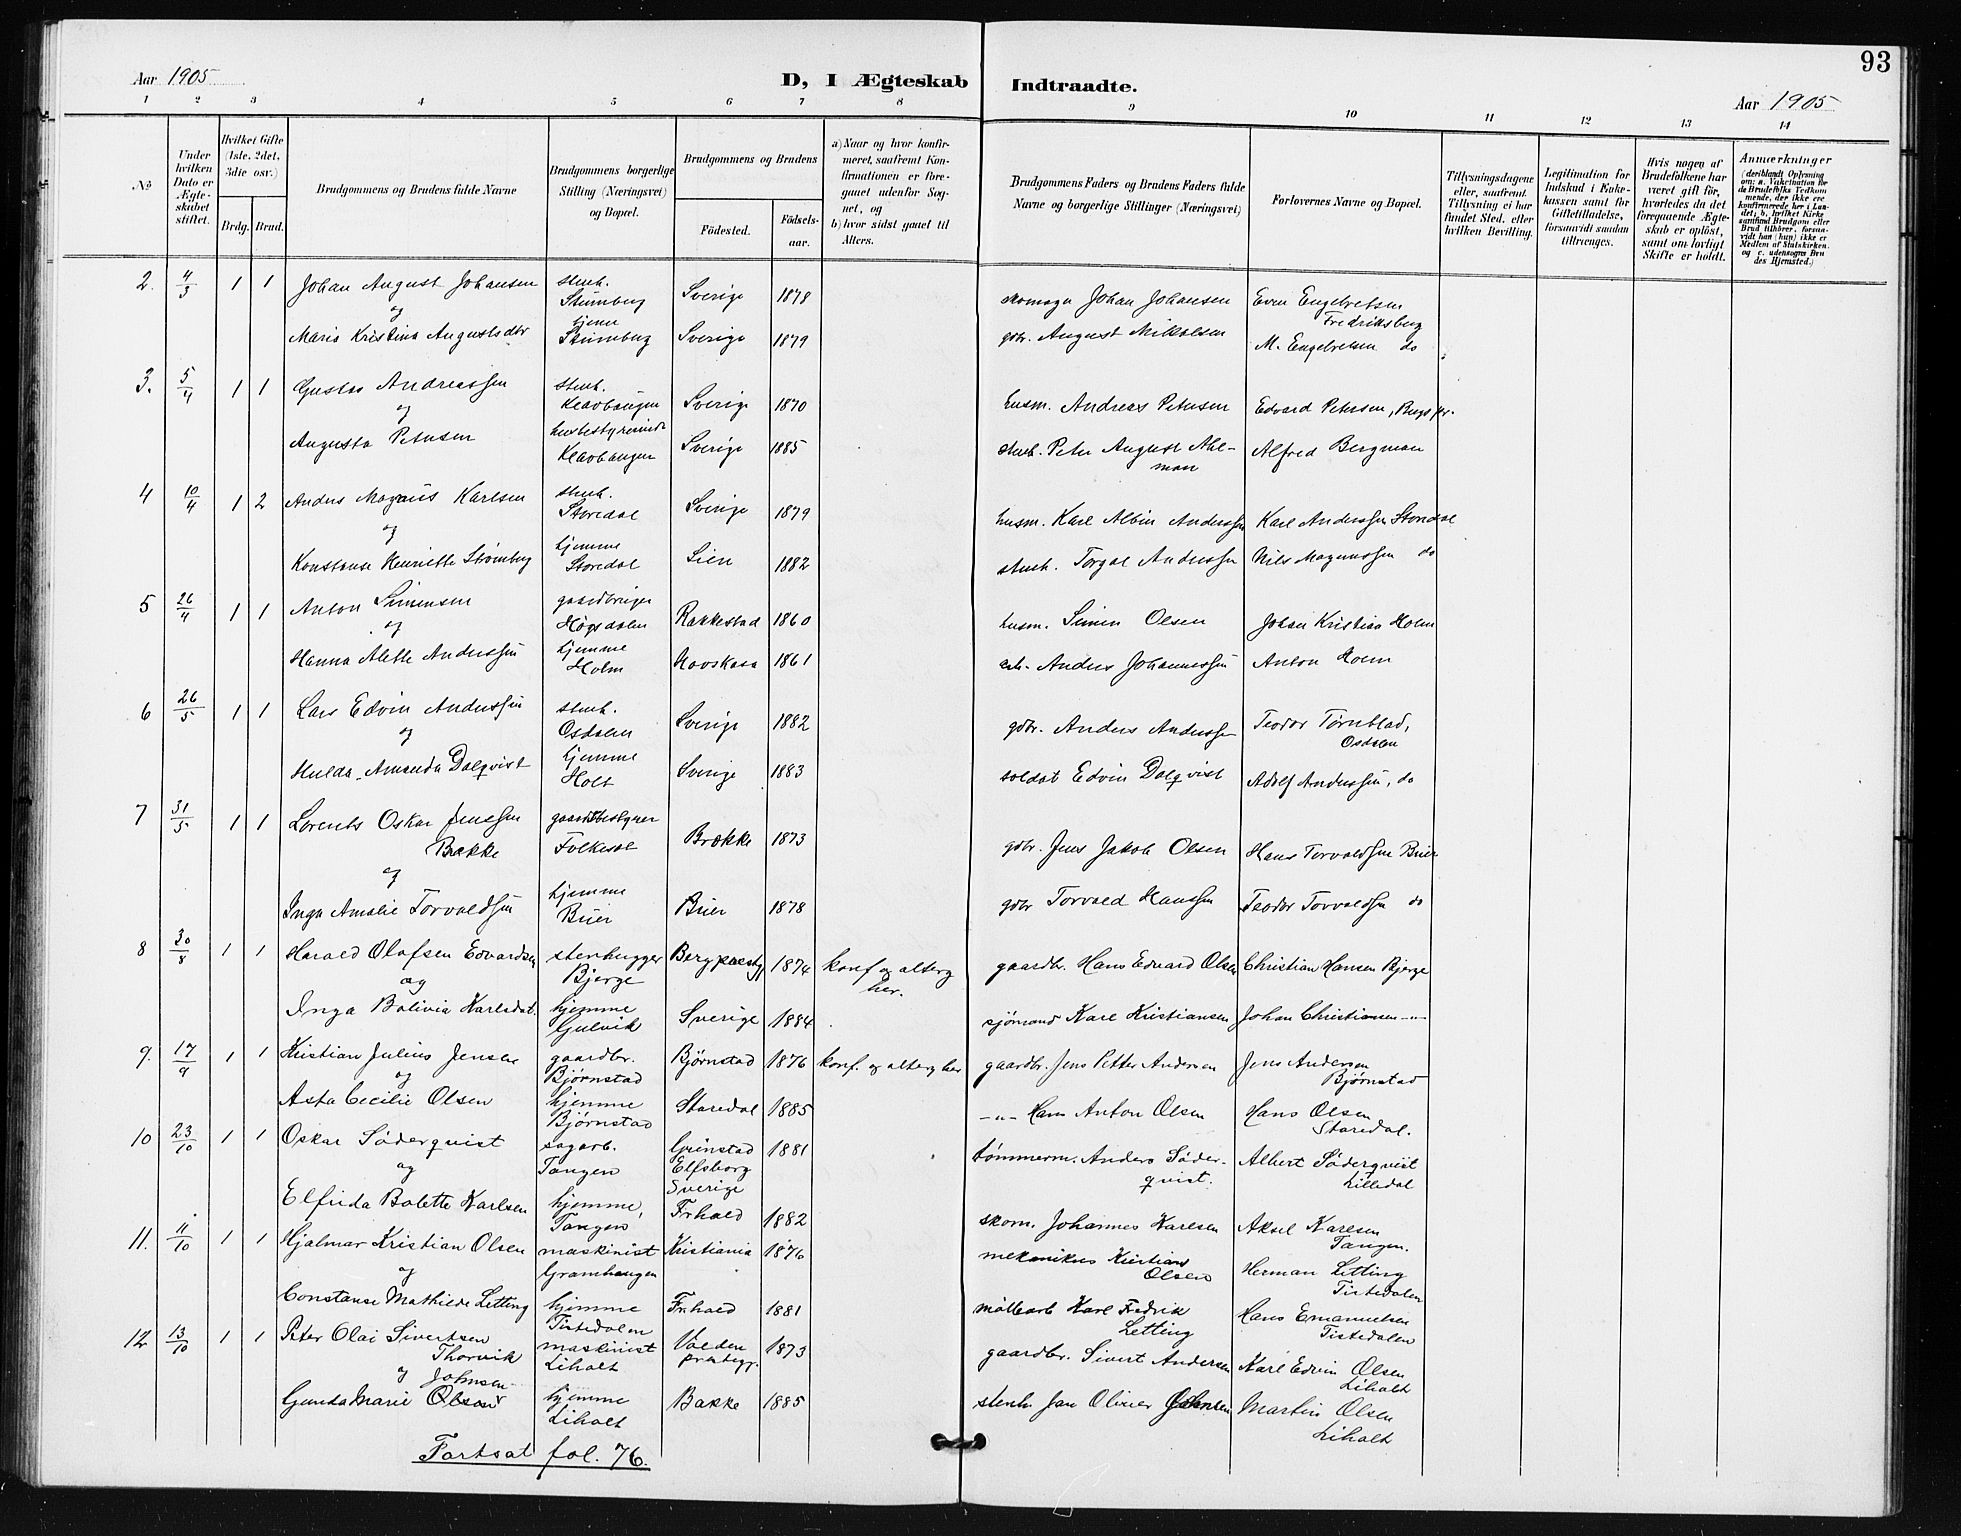 93
Aar 1905
D, I Ægteskab Indtraadte.
Aar 1905
1 2 3 4 5 6 7 8 9 10 11 12 13 14
No
Under hvilken Dato er Ægteskabet stiftet.
Hvilket Gifte (1ste, 2det, 3die osv.)
Brdg. Brud.
Brudgommens og Brudens fulde Navne
Brudgommens borgerlige Stilling (Næringsvei) og Bopæl.
Brudgommens og Brudens
Fødested. Fødselsaar.
a) Naar og hvor konfirmeret, saafremt Konfirmationen er foregaaet udenfor Sognet, og
b) hvor sidst gaaet til Alters.
Brudgommens Faders og Brudens Faders fulde Navne og borgerlige Stillinger (Næringsvei)
Forlovernes Navne og Bopæl.
Tillysningsdagene eller, saafremt Tillysning ei har fundet Sted, efter hvilken Bevilling.
Legitimation for Indskud i Enkekassen samt for Giftetilladelse, forsaavidt saadan tiltrænges.
Hvis nogen af Brudefolkene har været gift før, hvorledes da det foregaaende Ægteskab er opløst, samt om lovligt Skifte er holdt.
Anmærkninger
2. 4/3 1 1 Johan August Johansen stenh. Stümberg Sverige 1878 skomager Johan Johansen Even Engebretsen Fredriksberg
og
Maria Kristina Augustsdtr hjemme Stümberg Sverige 1879 gdbr. August Mikalsen M. Engebretsen do
3. 5/4 1 1 Gustav Andreassen stenh. Klavhaugen Sverige 1870 husm. Andreas Petersen Edvard Petersen, Bergs pr.
og
Augusta Petersen husbestyrerinde Klavhaugen Sverige 1885 stenh. Peter August Ahlman Alfred Bergman
4 10/4 1 2 Anders Magnus Karlsen stenh. Storedal Sverige 1879 husm. Karl Albin Anderssen Karl Anderssen Storedal
og
Konstanse Henriette Strömberg hjemme Storedal Lien 1882 stenh. Torgal Anderssen Nils Magnussen do
5 26/4 1 1 Anton Simensen gaardbruger Høgsdalen Rakkestad 1860 husm. Simen Olsen Johan Kristian Holm
og
Hanna Alette Anderssen hjemme Holm 1861 arb. Anders Johannessen Anton Holm
6 26/5 1 1 Lars Edvin Anderssen stenh. Osdalen Sverige 1882 gdbr. Anders Anderssen Teodor Törnblad, Osdalen
og
Hulda Amanda Dalqvist hjemme Holt Sverige 1883 soldat Edvin Dalqvist Adolf Anderssen, do
7 31/5 1 1 Lorents Oskar Jenssen Brække gaardbestyrer Folkesal Brække 1873 gdbr. Jens Jakob Olsen Hans Torvaldsen Brier
og
Inga Amalie Torvaldsen hjemme Brier Brier 1878 gdbr Torvald Hanssen Teodor Torvaldsen do
8 30/8 1 1 Harald Olafsen Edvardsen stenhugger Bjerge Berg præstg. 1874 konf og alterg her. gaardbr. Hans Edvard Olsen Christian Hansen Bjerge
og
Inga Bolivia Karlsdat. hjemme Gulvik Sverige 1884 sjömand Karl Kristiansen Johan Christiansen -"-
9. 17/9 1 1 Kristian Julius Jensen gaardbr. Bjørnstad Bjørnstad 1876 konf. og alterg her gaardbr. Jens Petter Andersen Jens Andersen Bjørnstad
og
Asta Cecilie Olsen hjemme Bjørnstad Storedal 1885 -"- Hans Anton Olsen Hans Olsen Storedal.
10 23/10 1 1 Oskar Söderqvist sagarb. Tangen Grinstad Elfsborg Sverige 1881 tömmerm. Anders Söderqvist. Albert Söderqvist Lilledal
og
Elfrida Bolette Karlsen hjemme, Tangen Frhald 1882 skom. Johannes Karlsen Aksel Karlsen Tangen.
11. 11/10 1 1 Hjalmar Kristian Olsen maskinist Gramhaugen Kristiania 1876 mekanikus Kristians Olsen Herman Letting Tistedalen
og
Constanse Mathilde Letting hjemme Tistedalen Frhald 1881 möllearb Karl Fredrik Letting Hans Emanuelsen Tistedalen
12 13/10 1 1 Peter Olai Sivertsen Thorvik maskinist Liholt Præstegj. 1873 gaardbr. Sivert Andersen Karl Edvin Olsen Liholt
og Johnsen
Gunda Marie Olsen hjemme Liholt Bakke 1885 stenh Jan Oliver Johnsen Martin Olsen Liholt
Fortsat fol. 76.